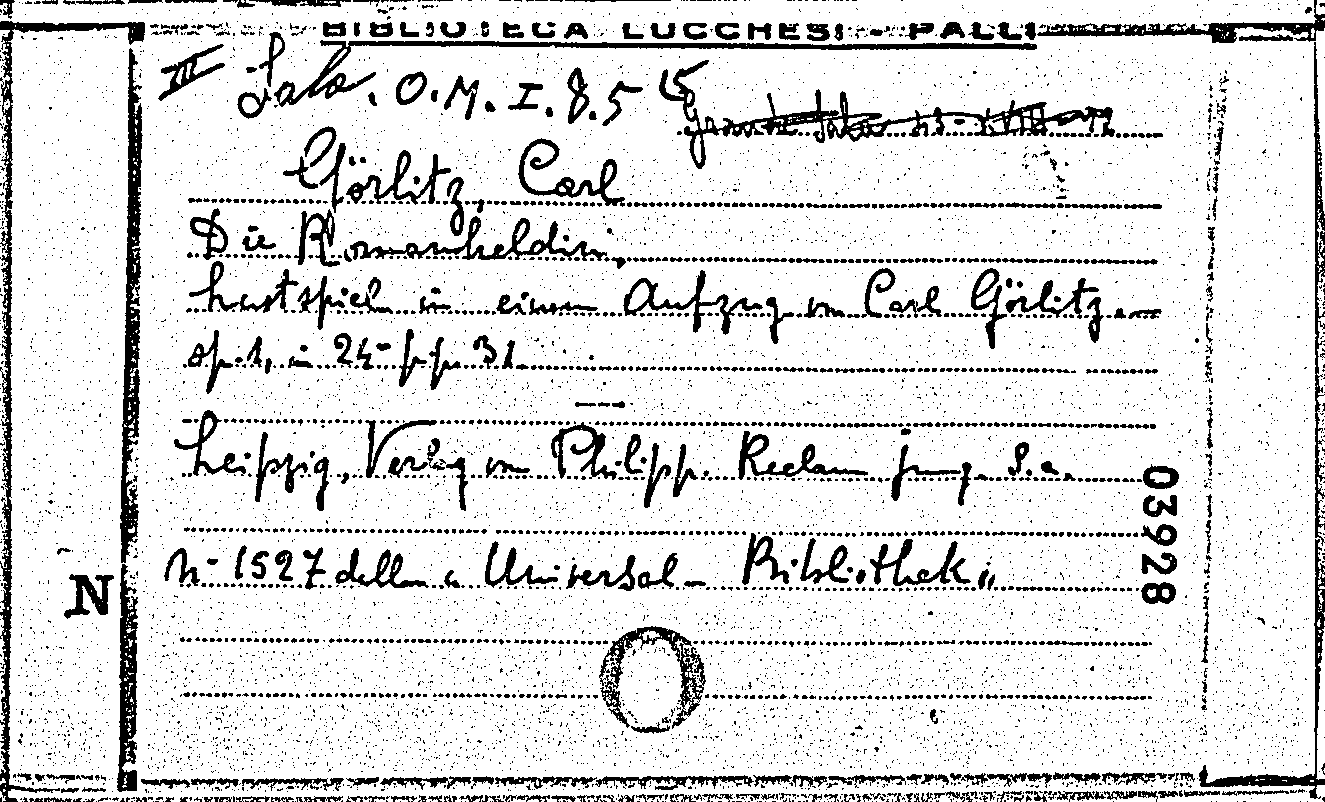 BIBLIOTECA LUCCHESI - PALLI
III Sala. O.M. I. 8.5 15
Görlitz, Carl
Die Romanheldin,
Lustspiel in einem Aufzug von Carl Görlitz.
op. 1, in 24- pp. 31
Leipzig, Verlag von Philipp. Reclam jung. S.a.
N- 1527 della « Universal - Bibliothek „
N
03928